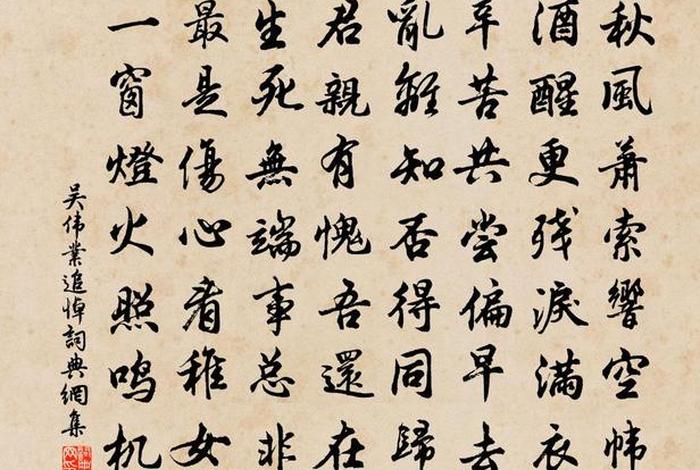 秋風蕭索響空幃
酒醒更残淚滿衣
辛苦共尝偏早去
亂離知否得同歸
君親有愧吾還在
生死無端事总非
最是傷心看稚女
一窗燈火照鸣机
吴伟業追悼詞典網集